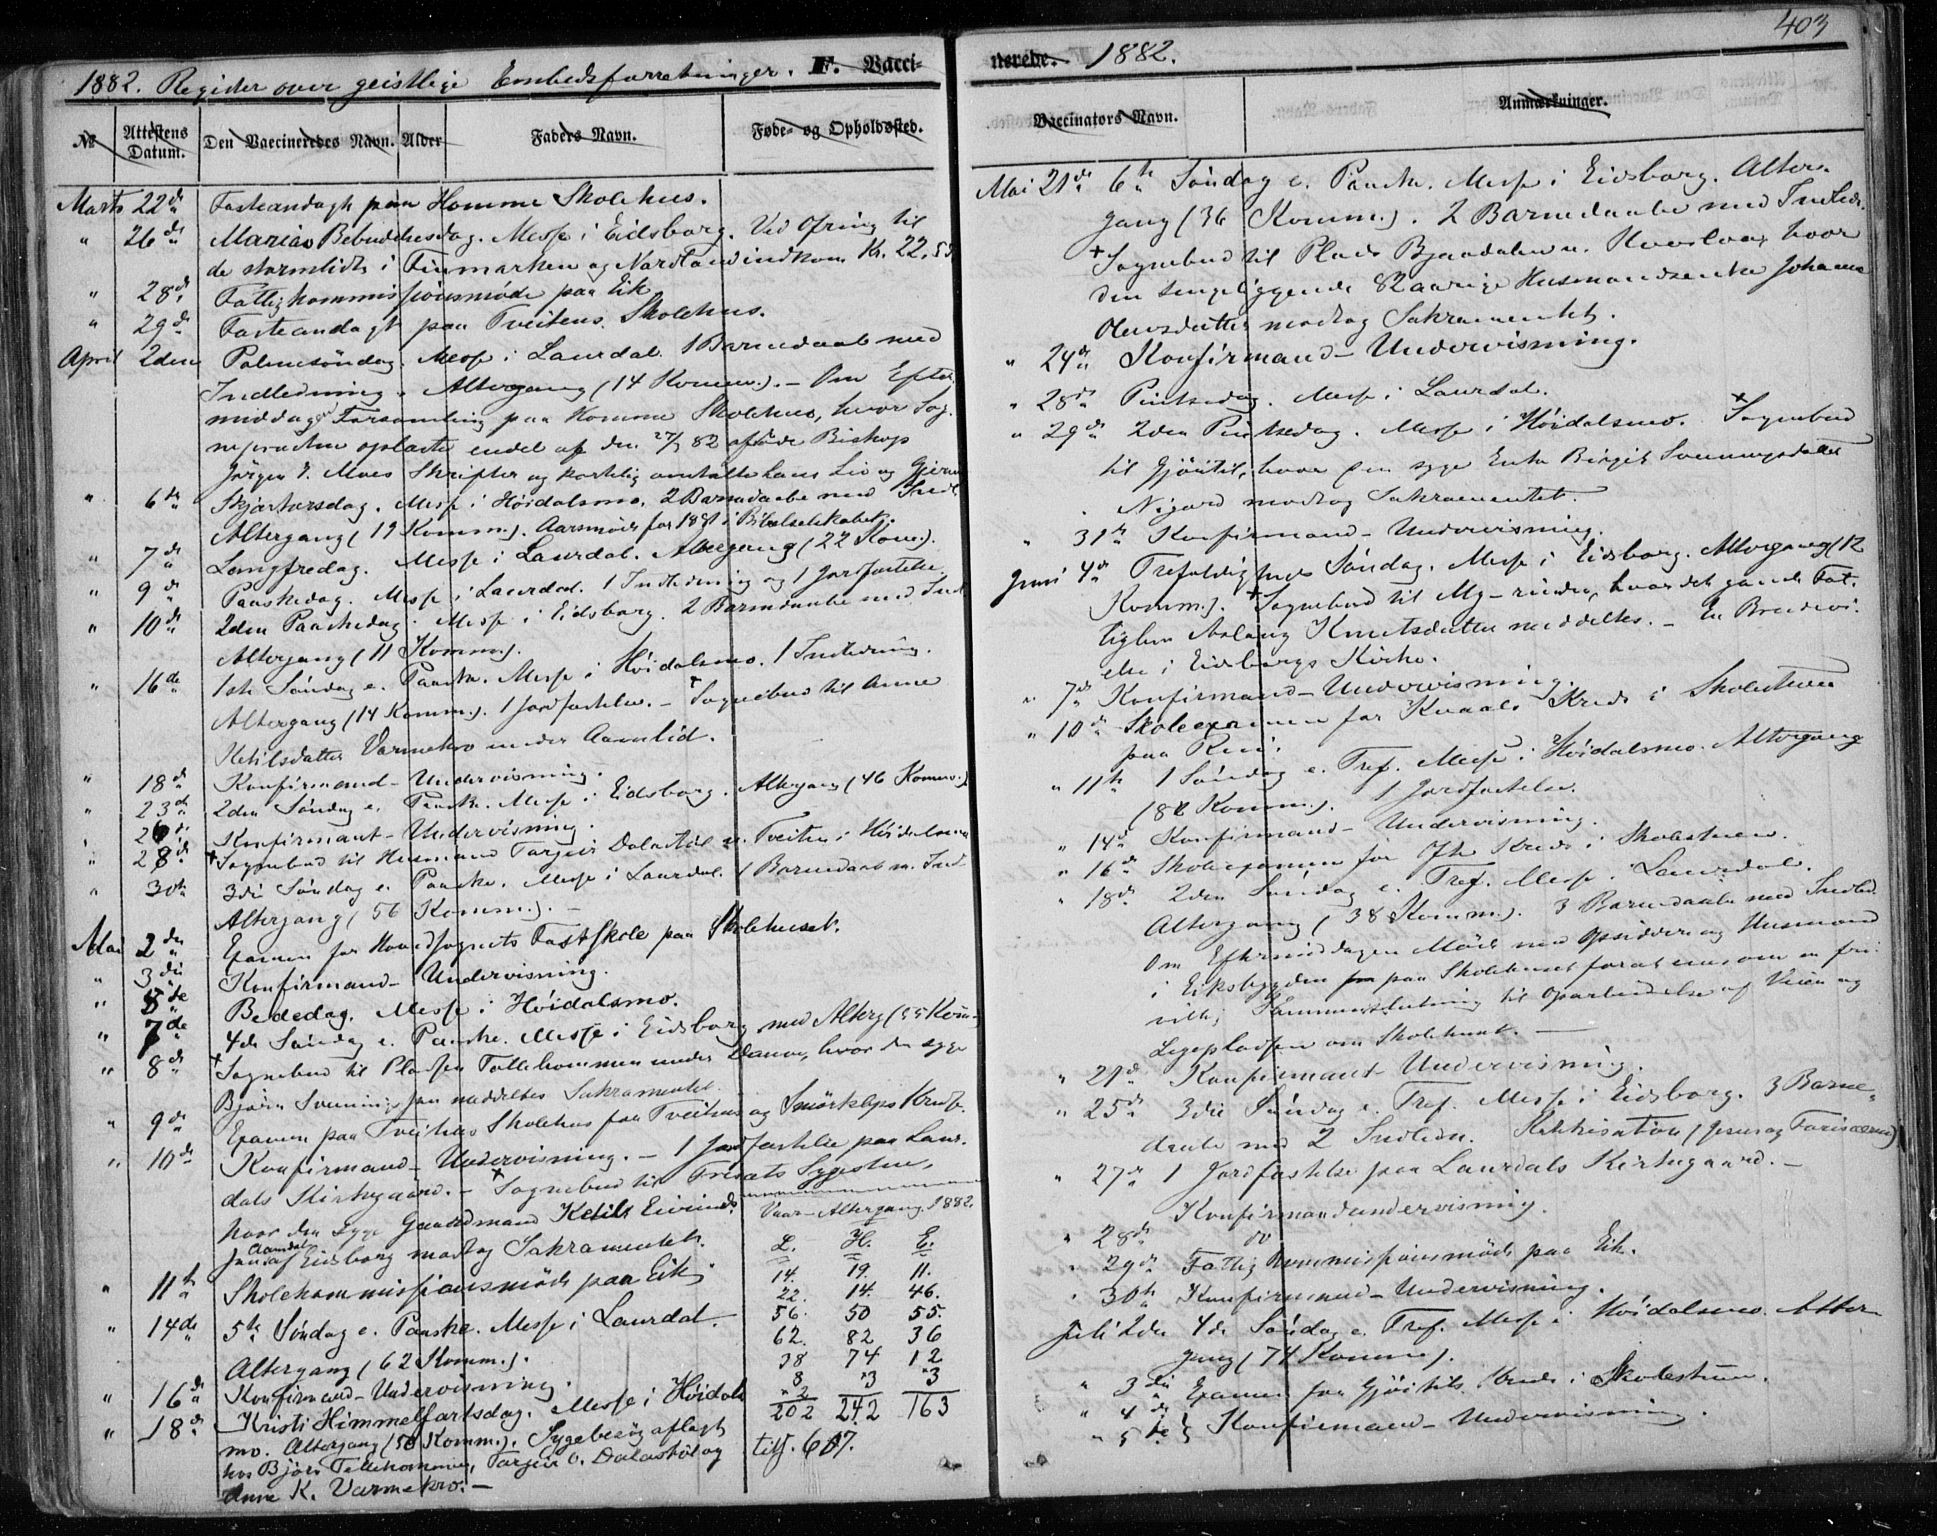 403
1882. Register over geistlige Embedsforretninger. F. Vacci-
nerede. 1882.
№ Attestens Datum. Den Vaccineredes Navn. Alder Faders Navn. Føde- og Opholdssted.
Vaccinators Navn. Anmærkninger.
Marts 22de Fasteandagt paa Homme Skolehus.
" 26de Mariæ Bebudelsesdag. Messe i Eidsborg. Ved Ofring til
de stormlidte i Finmarken og Nordland indkom Kr. 22,53
" 28de Fattigkommissionsmøde paa Eik
" 29de Fasteandagt paa Tveitens Skolehus.
April 2den Palmesøndag. Messe i Laurdal. 1 Barnedaab med
Indledning. Altergang (14 Komm.). – Om Efter-
middagen Forsamling paa Homme Skolehus, hvor Sog-
nepræsten oplæste endel af den 27/3 82 afdøde Biskop
Jørgen I. Moes Skrifter og kortelig omtalte hans Liv og Gjern
" 6te Skjærtorsdag. Messe i Høidalsmo. 2 Barnedaabe med Indl.
Altergang (19 Komm.). Aarsmøde for 1881 i Bibelselskabet.
" 7de Langfredag. Messe i Laurdal. Altergang (22 Kom.).
" 9de Paaskedag. Messe i Laurdal. 1 Indledning og 1 Jordfæstelse.
" 10de 2den Paaskedag. Messe i Eidsborg. 2 Barnedaabe med Indl
Altergang (11 Komm.).
" 16de 1ste Søndag e. Paaske. Messe i Høidalsmo. 1 Indledning.
Altergang (14 Komm.). 1 Jordfæstelse. – Sognebud til Anne
Ketilsdatter Varmekro under Aamlid.
" 18de Konfirmand-Undervisning.
" 23de 2den Søndag e. Paaske. Messe i Eidsborg. Altergang (46 Komm.)
" 26de Konfirmant-Undervisning.
" 28de Sognebud til Husmand Targeir Dalastøl u. Tveiten i Høidalsmo
" 30te 3die Søndag e. Paaske. Messe i Laurdal. 1 Barnedaab m. Indl
Altergang (56 Komm.). –
Mai 2den Examen for Hovedsognets Fastskole paa Skolehuset.
" 3die Konfirmand-Undervisning.
" 5de Bededag. Messe i Høidalsmo.
" 7de 4de Søndag e. Paaske. Messe i Eidsborg med Alterg (55 Kom.)
" 8de Sognebud til Pladsen Tellehommen under Dauvei, hvor den syge
Bjørn Sveinungsen meddeltes Sakramentet.
" 9de Examen paa Tveitens Skolehus for Tveitens og Smørkleps Kreds.
" 10de Konfirmand-Undervisning. – 1 Jordfæstelse paa Laur-
dals Kirkegaard. – Sognebud til Tveitens Sygestue,
hvor den syge Gaardmand Ketil Eivinds-
sen Aamdal af Eidsborg modtog Sakramentet.
" 11te Skolekommissionsmøde paa Eik.
" 14de 5te Søndag e. Paaske. Messe i Laurdal.
Altergang (62 Komm.).
" 16de Konfirmand-Undervisning.
" 18de Kristi Himmelfartsdag. Messe i Høidals-
mo. Altergang (50 Komm.). Sygebesøg aflagt
hos Bjørn Tellehommen, Targeir O. Dalastøl og
Anne K. Varmekro. –
Vaar-Altergang 1882.
L. H. E.
14. 19. 11.
22. 14. 46.
56. 50 55.
62. 82 36
38 74 12
8 "3 "3
"2
202 242 163
tils. 607.
Mai 21de 6te Søndag e. Paaske. Messe i Eidsborg. Alter-
gang (36 Komm.). 2 Barnedaabe med Indledn.
Sognebud til Plads Bjaadalen u. Hvor
den sengeliggende 82aarige Husmandsenke Johanne
Olensdatter modtog Sakramentet.
" 24de Konfirmand-Undervisning.
" 28de Pintsedag. Messe i Laurdal.
" 29de 2den Pintsedag. Messe i Høidalsmo. Sognebud
til Gjøitil, hvor den syge Enke Birgit Sveinungsdatter
Nigard modtog Sakramentet.
" 31te Konfirmand-Undervisning.
Juni 4de Trefoldigheds Søndag. Messe i Eidsborg. Altergang (12
Komm.). Sognebud til hvor det gamle Fat-
tiglem Aslaug Knutsdatter meddeltes. – En Brudevi-
else i Eidsborgs Kirke.
" 7de Konfirmand-Undervisning.
" 10de Skoleexamen for Kvaale Kreds i Skolestuen
paa Rui.
" 11te 1 Søndag e. Tref. Messe i Høidalsmo. Altergang
(82 Komm.). 1 Jordfæstelse.
" 14de Konfirmand-Undervisning.
" 16de Skoleexamen for Kreds i Skolestuen.
" 18de 2den Søndag e. Tref. Messe i Laurdal.
Altergang (38 Komm.). 3 Barnedaabe med Indledn.
Om Eftermiddagen Møde med Opsiddere og Husmænd
i Eiksbygden paa Skolehuset forat enes om en fri-
villig Sammenslutning til Oparbeidelse af Veien og
Legepladsen om Skolehuset. –
" 21de Konfirmant Undervisning.
" 25de 3die Søndag e. Tref. Messe i Eidsborg. 3 Barne-
daabe med 2 Indledn. Katekisation (Jesus og Farisæerne)
" 27de 1 Jordfæstelse paa Laurdals Kirkegaard. –
Konfirmandundervisning.
" 28de do
" 29de Fattigkommissionsmøde paa Eik.
" 30te Konfirmand-Undervisning.
Juli 2den 4de Søndag e. Tref. Messe i Høidalsmo. Alter-
gang (74 Komm.).
" 3die Examen for Gjøitils Kreds i Skolestuen.
" 4de
" 5te } Konfirmand-Undervisning.